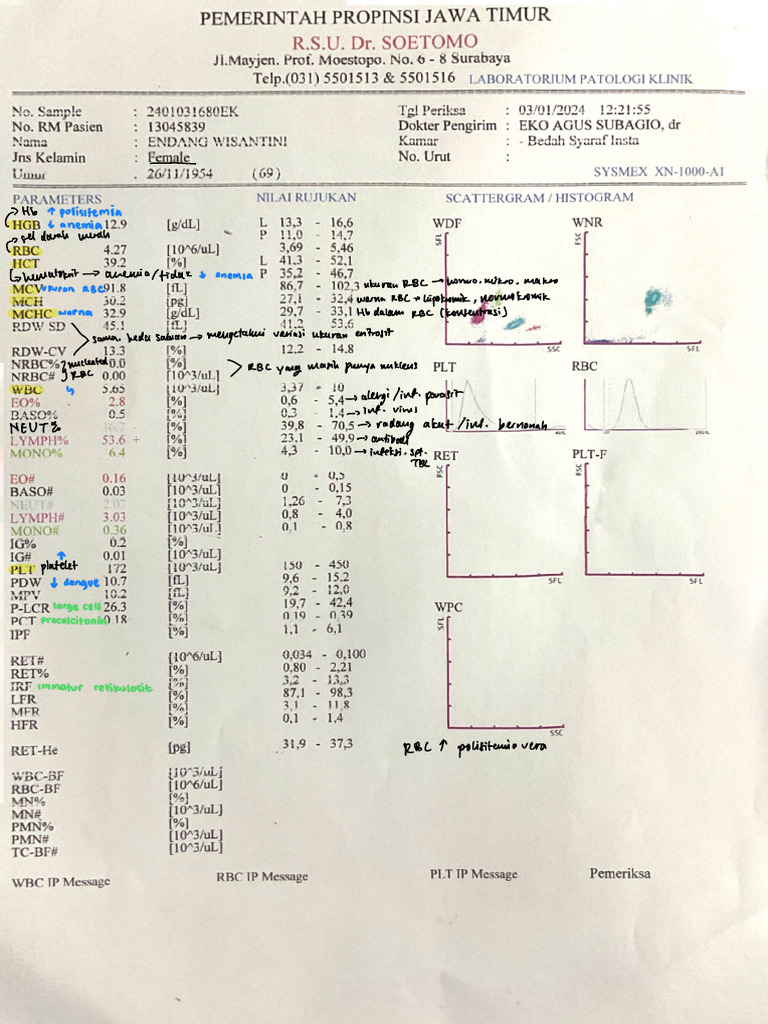 PEMERINTAH PROPINSI JAWA TIMUR
R.S.U. Dr. SOETOMO
Jl.Mayjen. Prof. Moestopo. No. 6 - 8 Surabaya
Telp.(031) 5501513 & 5501516 LABORATORIUM PATOLOGI KLINIK
No. Sample : 2401031680EK Tgl Periksa : 03/01/2024 12:21:55
No. RM Pasien : 13045839 Dokter Pengirim : EKO AGUS SUBAGIO, dr
Nama : ENDANG WISANTINI Kamar : - Bedah Syaraf Insta
Jns Kelamin : Female No. Urut :
Umur : 26/11/1954 (69) SYSMEX XN-1000-A1
PARAMETERS NILAI RUJUKAN SCATTERGRAM / HISTOGRAM
Hb ↑ polisitemia
HGB ↓ anemia 12.9 [g/dL] L 13,3 - 16,6 WDF WNR
sel darah merah P 11,0 - 14,7
RBC 4.27 [10^6/uL] 3,69 - 5,46
HCT 39.2 [%] L 41,3 - 52,1
hematokrit → anemia/tidak ↓ anemia P 35,2 - 46,7
MCV ukuran RBC 91.8 [fL] 86,7 - 102,3 ukuran RBC → normo, mikro, makro
MCH 30.2 [pg] 27,1 - 32,4 warna RBC → hipokromik, normokromik
MCHC warna 32.9 [g/dL] 29,7 - 33,1 Hb dalam RBC (konsentrasi)
RDW SD 45.1 [fL] 41,2 - 53,6
sama, beda satuan → mengetahui variasi ukuran eritrosit
RDW-CV 13.3 [%] 12,2 - 14,8
NRBC% nucleated 0.0 [%] RBC yang masih punya nukleus PLT RBC
NRBC# RBC 0.00 [10^3/uL]
WBC 5.65 [10^3/uL] 3,37 - 10
EO% 2.8 [%] 0,6 - 5,4 → alergi/inf. parasit
BASO% 0.5 [%] 0,3 - 1,4 → inf. virus
NEUT% 36.7 [%] 39,8 - 70,5 → radang akut/inf. bernanah
LYMPH% 53.6 + [%] 23,1 - 49,9 → antibodi
MONO% 6.4 [%] 4,3 - 10,0 → infeksi spt. TBC
RET PLT-F
EO# 0.16 [10^3/uL] 0 - 0,5
BASO# 0.03 [10^3/uL] 0 - 0,15
NEUT# 2.07 [10^3/uL] 1,26 - 7,3
LYMPH# 3.03 [10^3/uL] 0,8 - 4,0
MONO# 0.36 [10^3/uL] 0,1 - 0,8
IG% 0.2 [%]
IG# 0.01 [10^3/uL]
PLT platelet ↑ 172 [10^3/uL] 150 - 450
PDW ↓ dengue 10.7 [fL] 9,6 - 15,2
MPV 10.2 [fL] 9,2 - 12,0
P-LCR large cell 26.3 [%] 19,7 - 42,4 WPC
PCT procalcitonin 0.18 [%] 0,19 - 0,39
IPF [%] 1,1 - 6,1
RET# [10^6/uL] 0,034 - 0,100
RET% [%] 0,80 - 2,21
IRF immatur retikulosit [%] 3,2 - 13,3
LFR [%] 87,1 - 98,3
MFR [%] 3,1 - 11,8
HFR [%] 0,1 - 1,4
RET-He [pg] 31,9 - 37,3 RBC ↑ polisitemia vera
WBC-BF [10^3/uL]
RBC-BF [10^6/uL]
MN% [%]
MN# [10^3/uL]
PMN% [%]
PMN# [10^3/uL]
TC-BF# [10^3/uL]
WBC IP Message RBC IP Message PLT IP Message Pemeriksa